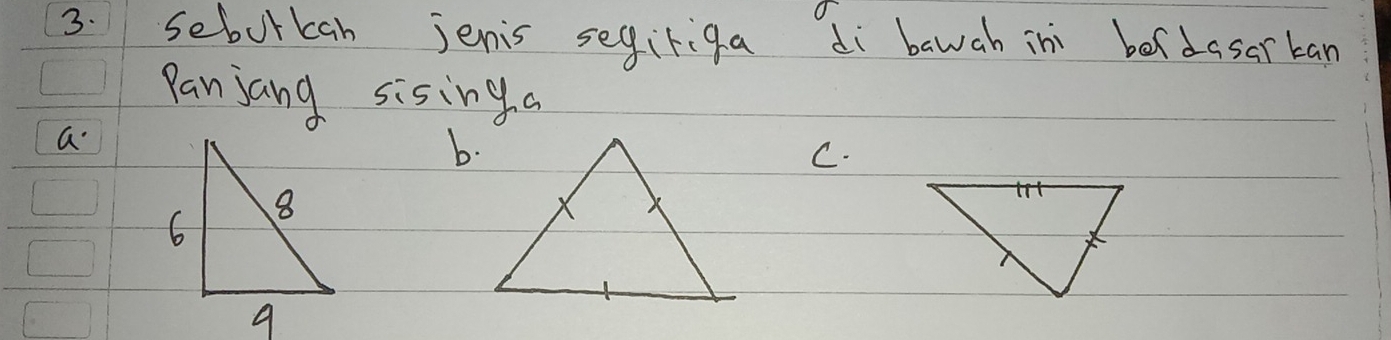 3. Sebutkan jenis segitiga di bawah ini berdasarkan
Panjang sisinya
a. b. c.
6 8
9